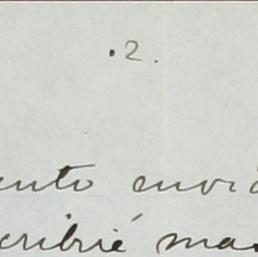 .2.
ento envi
cribié ma